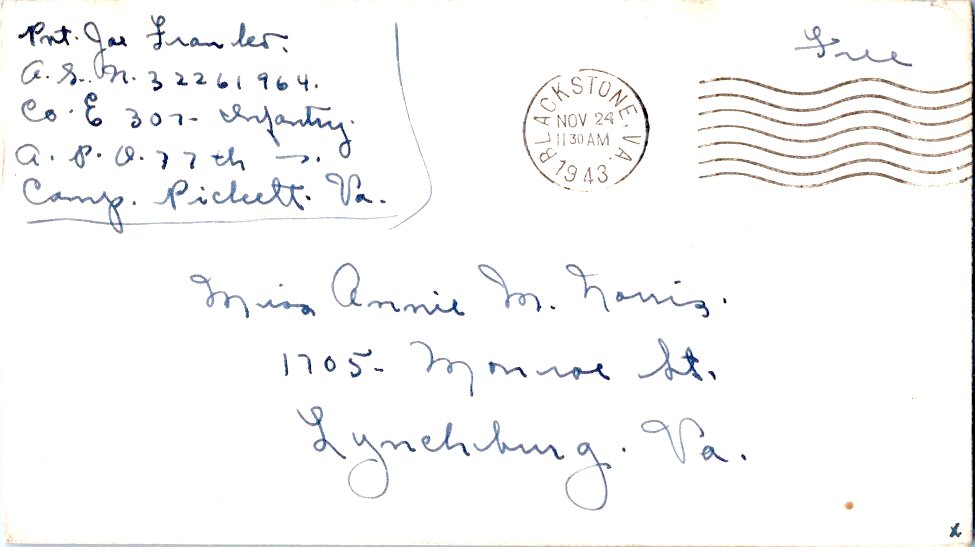 Pvt. Joe Franko.
A. S. N. 32261964.
Co. E 307- Infantry.
A. P. O. 77th
Camp. Pickett. Va.
Free
BLACKSTONE, VA.
NOV 24
11 30 AM
1943
Miss Annie M. Norris.
1705- Monroe St.
Lynchburg. Va.